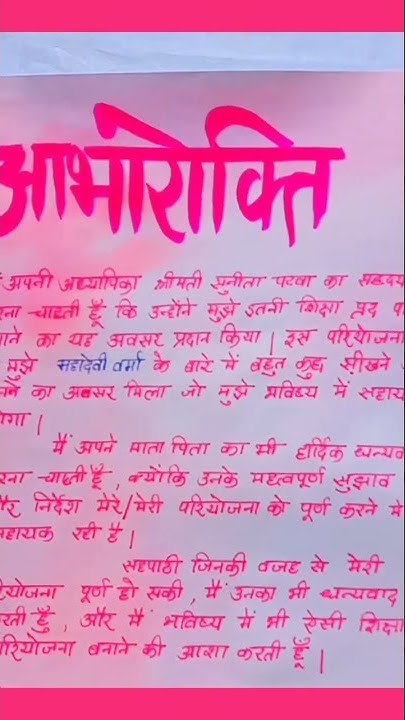 आभारोक्ति
अपनी अध्यापिका श्रीमती सुनीता परवा का सहृदय
रना चाहती हूँ कि उन्होंने मुझे इतनी शिक्षा प्रद प
ाने का यह अवसर प्रदान किया | इस परियोजना
मुझे महादेवी वर्मा के बारे में बहुत कुछ सीखने
नने का अवसर मिला जो मुझे भविष्य में सहाय
ोगा |
मैं अपने माता पिता का भी हार्दिक धन्यव
रना चाहती हूँ , क्योंकि उनके महत्वपूर्ण सुझाव
और निर्देश मेरे/मेरी परियोजना को पूर्ण करने मे
सहायक रही है |
सहपाठी जिनकी वजह से मेरी
रियोजना पूर्ण हो सकी , मैं उनका भी धन्यवाद
रती हुँ , और मैं भविष्य में भी ऐसी शिक्षा
परियोजना बनाने की आशा करती हूँ |